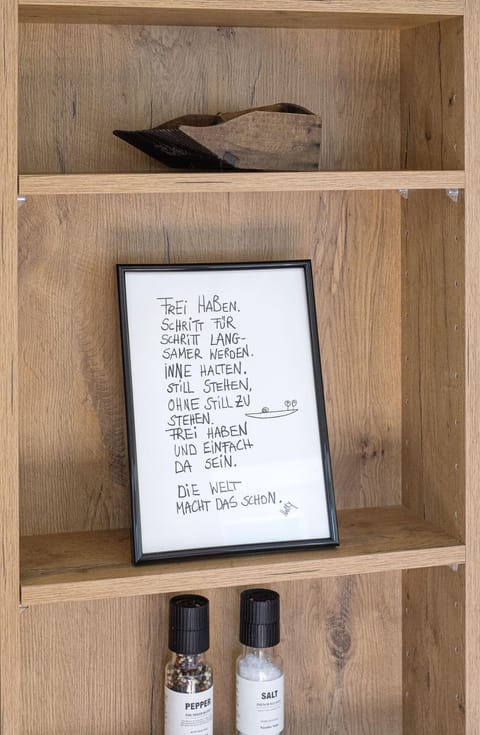 FREI HABEN.
SCHRITT FÜR
SCHRITT LANG-
SAMER WERDEN.
INNE HALTEN.
STILL STEHEN,
OHNE STILL ZU
STEHEN.
FREI HABEN
UND EINFACH
DA SEIN.
DIE WELT
MACHT DAS SCHON.
PEPPER
SALT